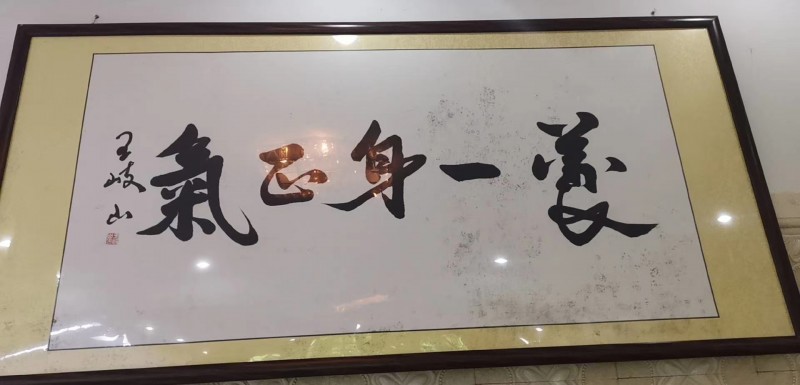 養一身正氣
王岐山